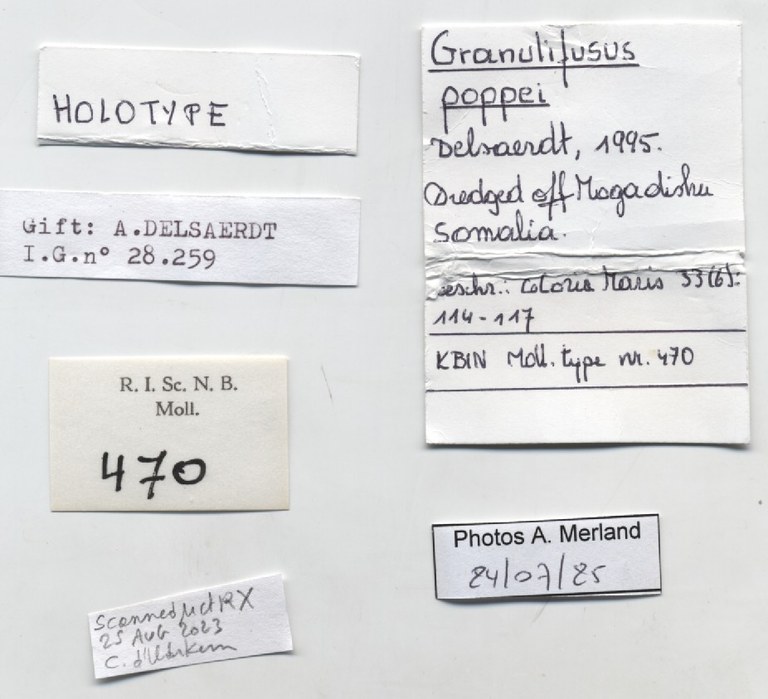 HOLOTYPE
Gift: A.DELSAERDT
I.G.n° 28.259
R. I. Sc. N. B.
Moll.
470
Scanned μctRX
25 AUG 2023
Granulifusus
poppei
Delsaerdt, 1995.
Dredged off Mogadishu
Somalia.
eschr.: Gloria Maris 33(6):
114-117
KBIN Moll. type nr. 470
Photos A. Merland
24/07/25